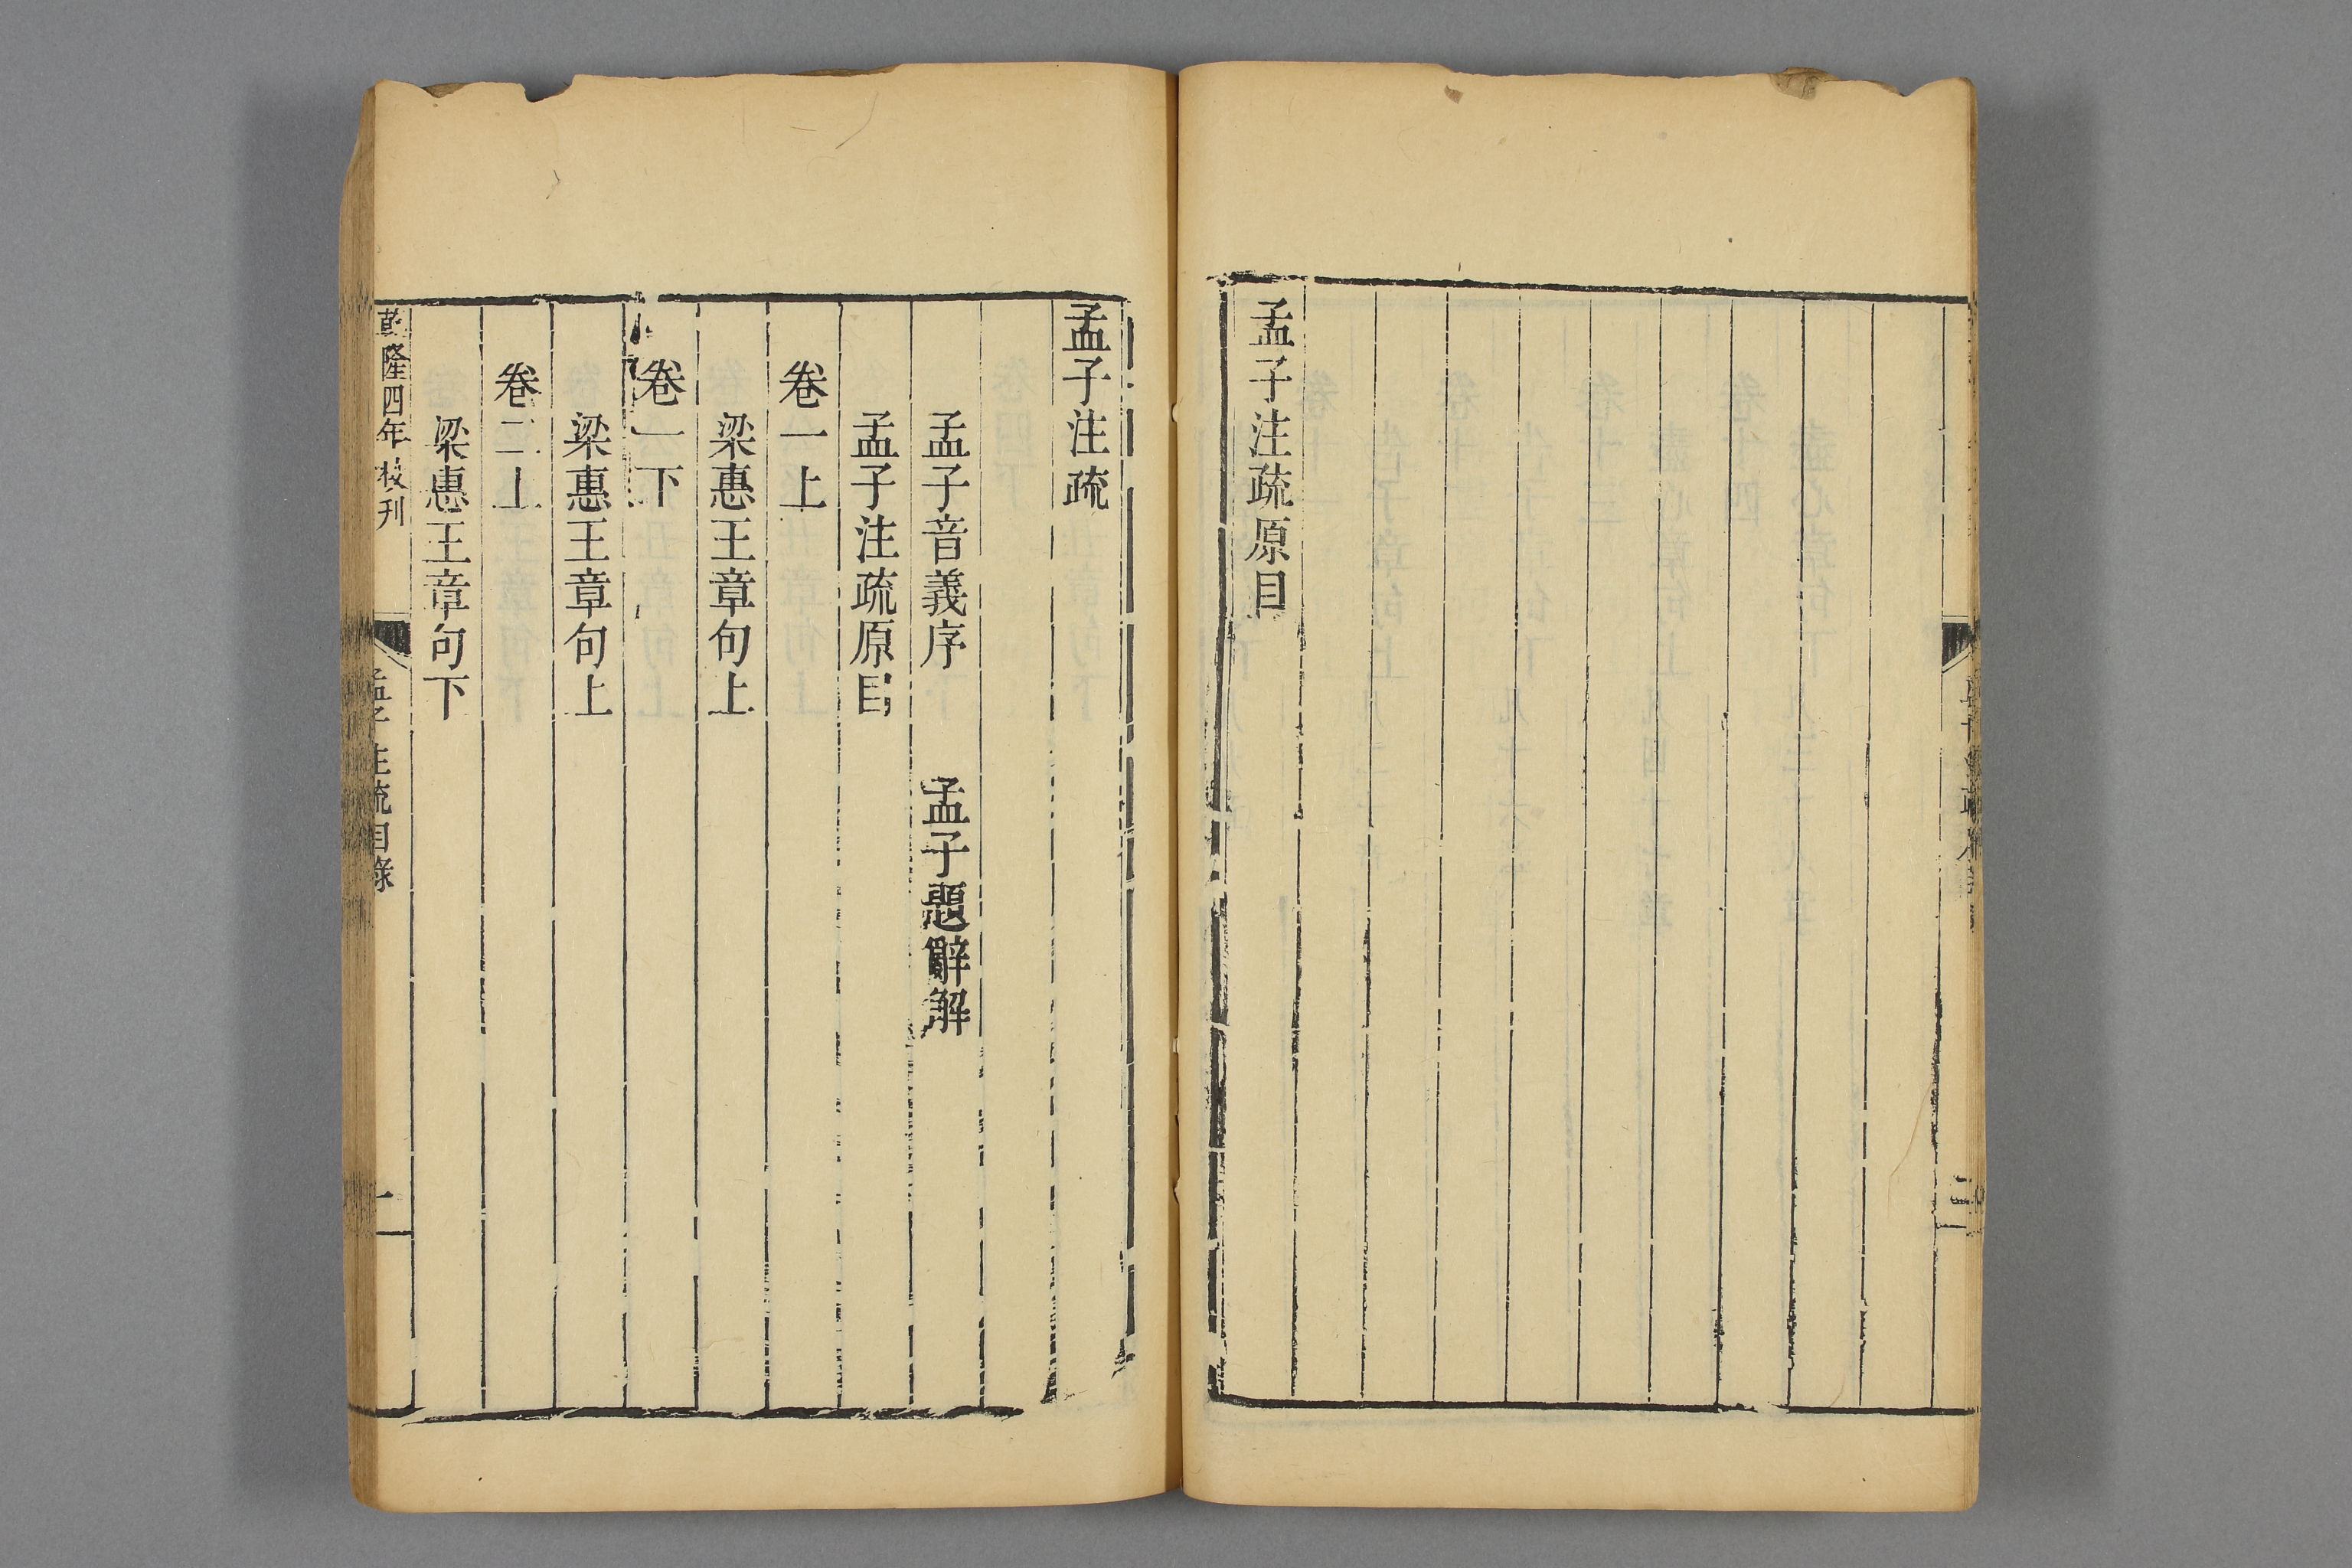 孟子注疏原目
孟子注疏
孟子音義序 孟子題辭解
孟子注疏原目
卷一上
梁惠王章句上
卷一下
梁惠王章句上
卷二上
梁惠王章句下
乾隆四年校刊
孟子注疏目錄
一